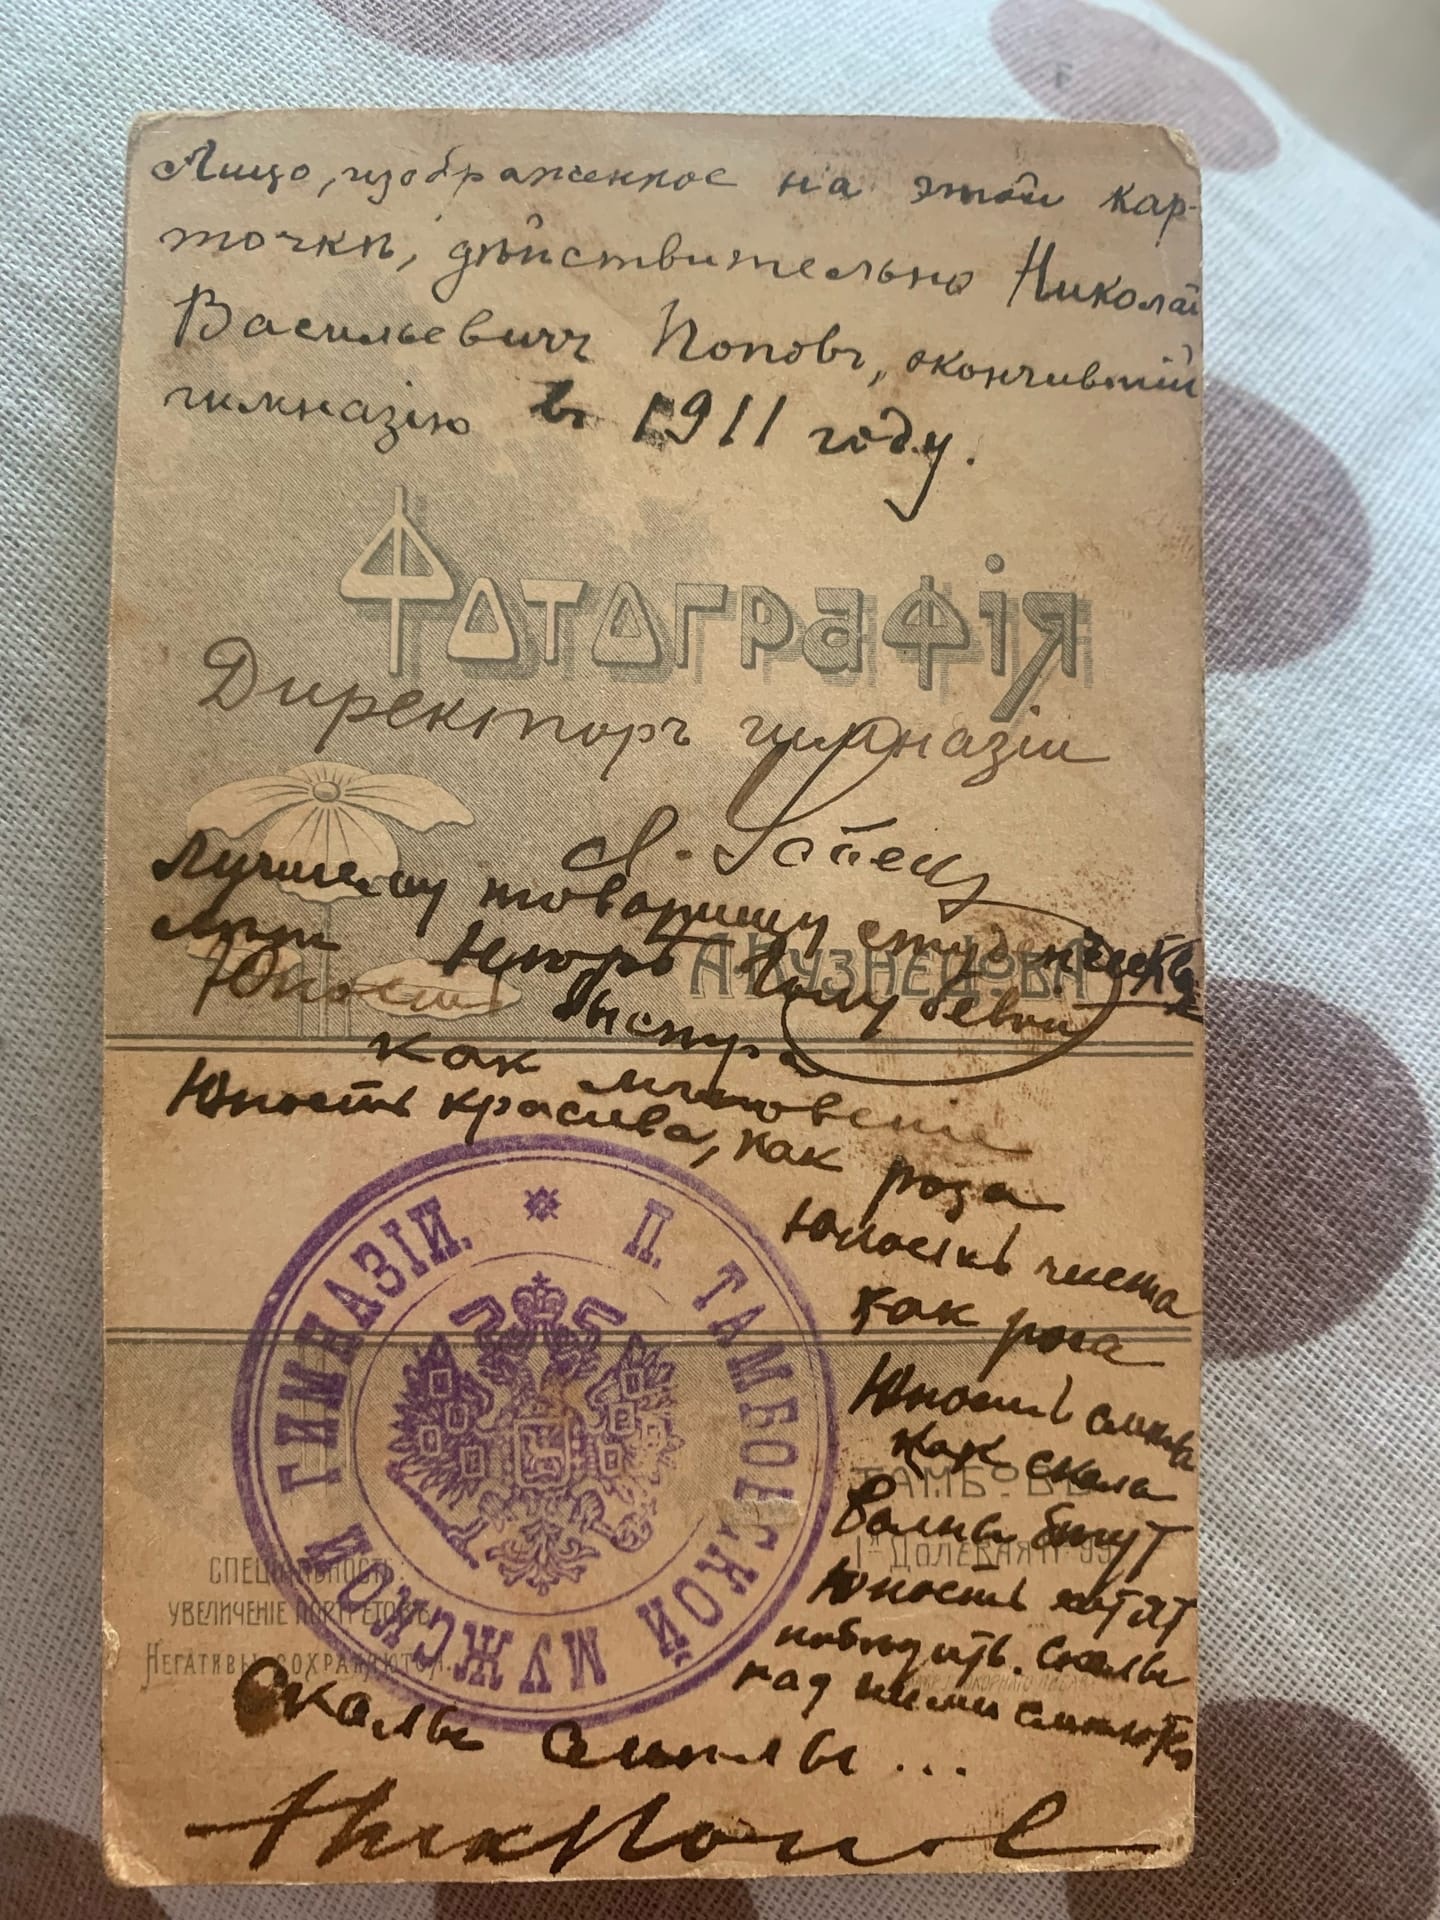 Лицо, изображенное на этой кар-
точкѣ, дѣйствительно Николай
Васильевичъ Поповъ, окончившій
гимназію въ 1911 году.
Фотографія
Директоръ гимназіи
А.
Лучшему товарищу студенческ
Нюрѣ Голубевой
А. КУЗНЕЦОВА
Юность быстра
как мгновеніе
Юность красива, как роза
Юность чиста
как роса
Юность сильна
как скала
Волны бьут
Юность хотят
победить. Скалы
над ними смеются
Скалы сильны...
НикПопов
П. ТАМБОВСКОЙ МУЖСКОЙ ГИМНАЗІИ.
ТАМБОВЪ
1я ДОЛЕВАЯ
СПЕЦІАЛЬНОСТЬ:
УВЕЛИЧЕНІЕ ПОРТРЕТОВЪ
НЕГАТИВЫ СОХРАНЯЮТСЯ.